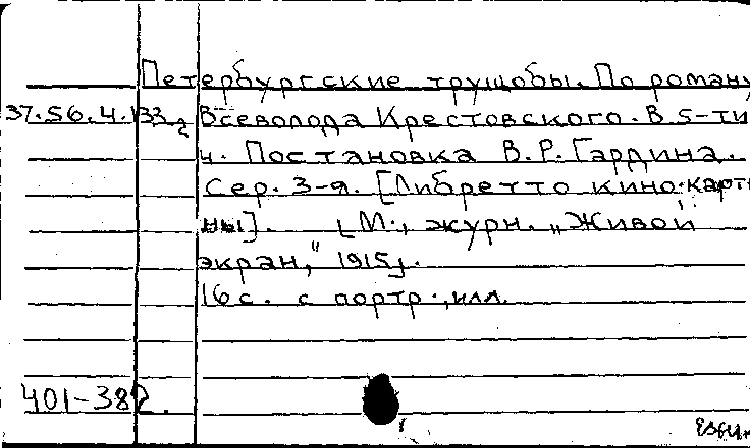 Петербургские трущобы. По роману
37.56.4.133 Всеволода Крестовского. В 5-ти
ч. Постановка В.Р. Гардина.
Сер. 3-я. [Либретто кино-карти
ны]. [М., журн. „Живой
экран," 1915].
16 с. с портр., илл.
401-382.